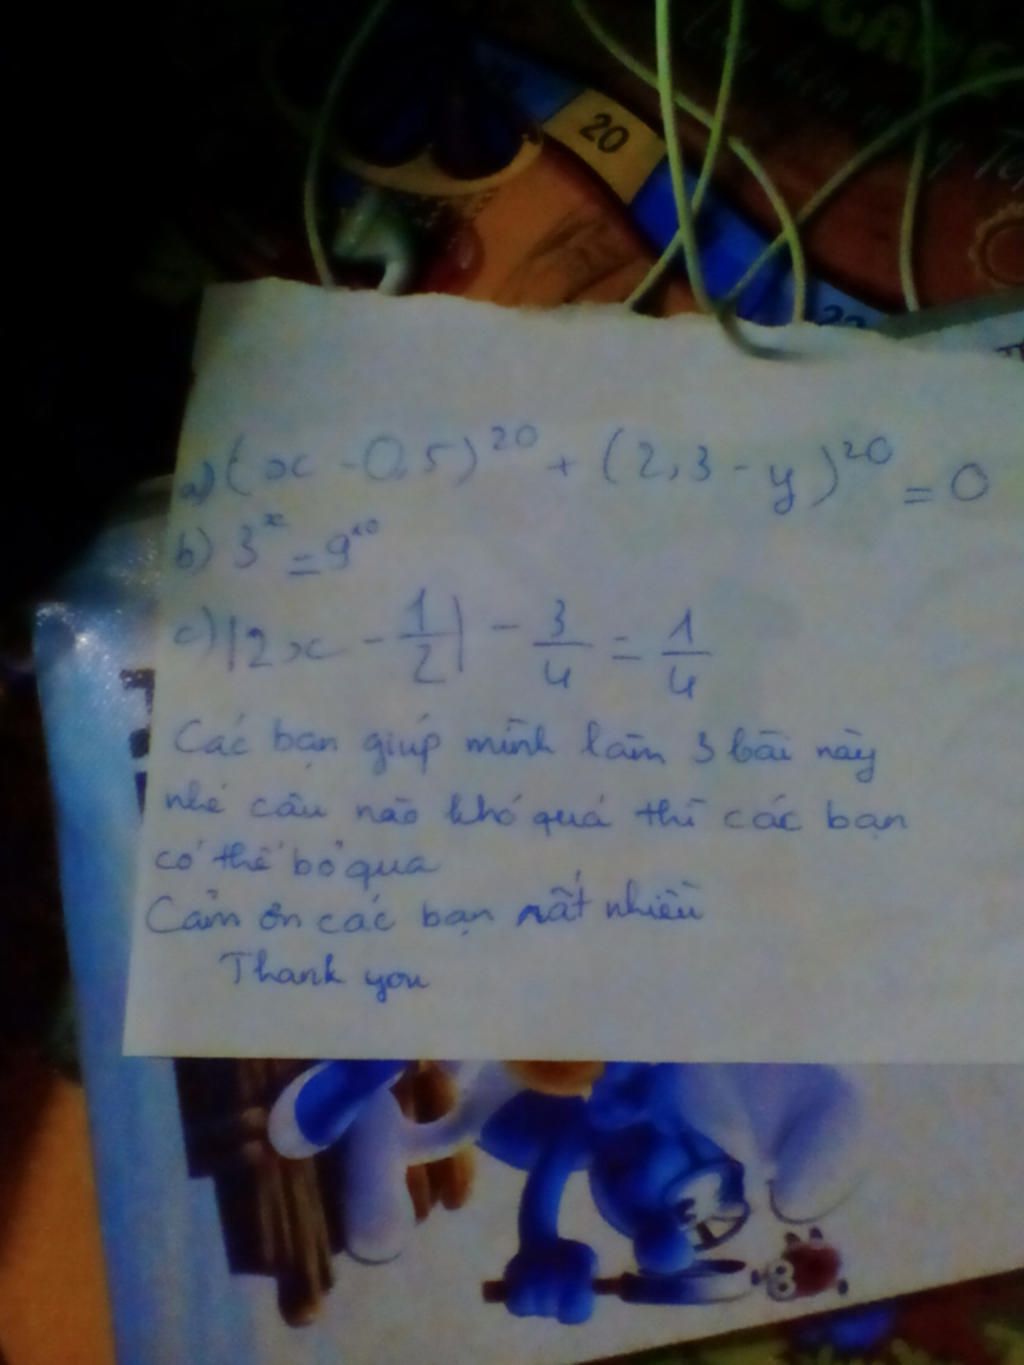 20
22
a) (x - 0,5)^20 + (2,3 - y)^20 = 0
b) 3^x = 9^10
c) |2x - 1/2| - 3/4 = 1/4
Các bạn giúp mình làm 3 bài này
nhé câu nào khó quá thì các bạn
có thể bỏ qua
Cảm ơn các bạn rất nhiều
Thank you